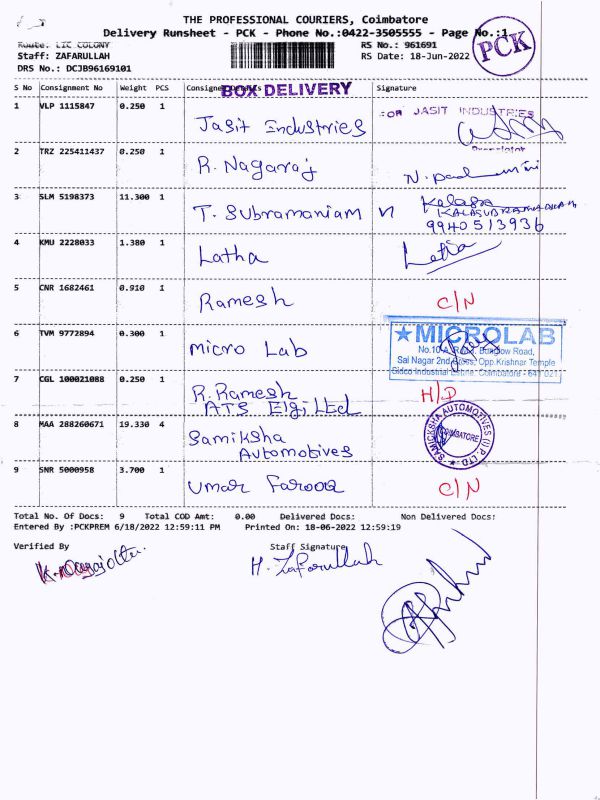 THE PROFESSIONAL COURIERS, Coimbatore
Delivery Runsheet - PCK - Phone No.:0422-3505555 - Page No.:1
PCK
Route: LIC COLONY
RS No.: 961691
Staff: ZAFARULLAH
RS Date: 18-Jun-2022
DRS No.: DCJB96169101
S No Consignment No Weight PCS Consignee Details Signature
BOX DELIVERY
1 VLP 1115847 0.250 1 Jasit Industries FOR JASIT INDUSTRIES
2 TRZ 225411437 0.250 1 R. Nagaraj
3 SLM 5198373 11.300 1 T. Subramaniam
9940513936
4 KMU 2228033 1.380 1 Latha
5 CNR 1682461 0.910 1 Ramesh C/N
6 TVM 9772894 0.300 1 micro Lab
★MICROLAB
Sai Nagar 2nd Cross, Opp.Krishnar Temple
Sidco Industrial Estate. Coimbatore - 641 021
7 CGL 100021088 0.250 1 R. Ramesh H/D
ATS Elgi Ltd
8 MAA 288260671 19.330 4 Samiksha
Automotives
SAMICKSHA AUTOMOTIVES (I) P. LTD
COIMBATORE
9 SNR 5000958 3.700 1 Umar Farooq C/N
Total No. Of Docs: 9 Total COD Amt: 0.00 Delivered Docs: Non Delivered Docs:
Entered By :PCKPREM 6/18/2022 12:59:11 PM Printed On: 18-06-2022 12:59:19
Verified By Staff Signature
H. Zafarullah